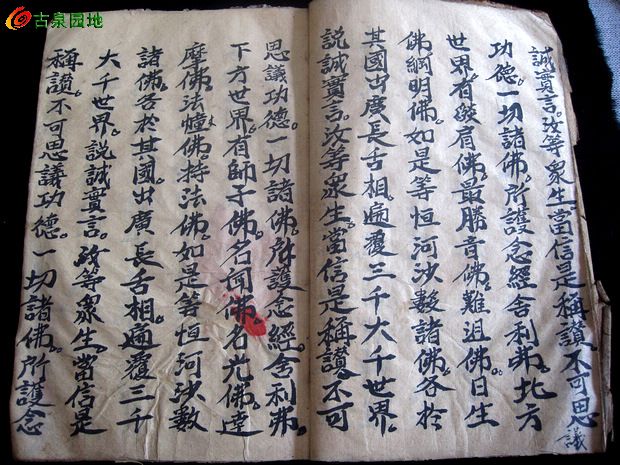 古泉园地
誠實言。汝等衆生當信是稱讃不可思議
功德一切諸佛。所護念經舍利弗。北方
世界有燄肩佛。最勝音佛。難沮佛。日生
佛。網明佛。如是等恒河沙數諸佛。各於
其國出廣長舌相。遍覆三千大千世界。
說誠實言。汝等衆生。當信是稱讃不可
思議功德。一切諸佛所護念經。舍利弗。
下方世界有師子佛。名聞佛。名光佛。達
摩佛。法幢佛。持法佛。如是等恒河沙數
諸佛。各於其國出廣長舌相。遍覆三千
大千世界。說誠實言。汝等衆生。當信是
稱讃不可思議功德。一切諸佛所護念